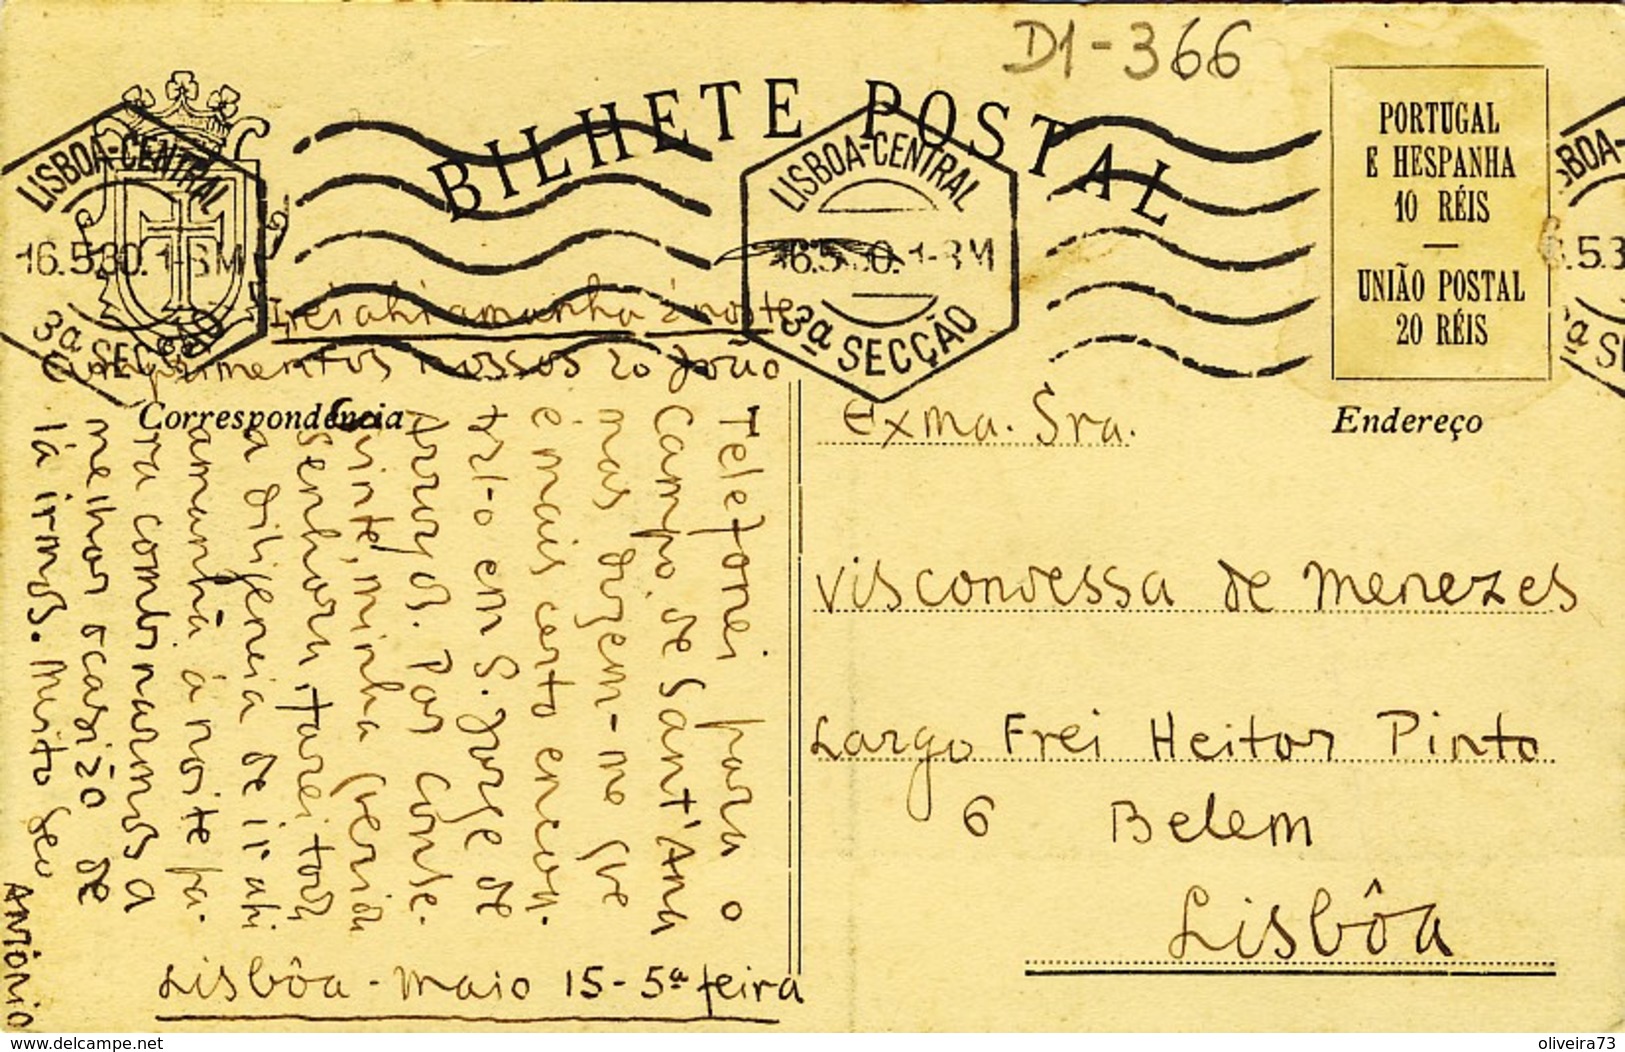 D1-366
BILHETE POSTAL
PORTUGAL
E HESPANHA
10 RÉIS
—
UNIÃO POSTAL
20 RÉIS
LISBOA-CENTRAL
16.5.30. 1-3M
3ª SECÇÃO
LISBOA-CENTRAL
16.5.30. 1-3M
3ª SECÇÃO
BOA-
.5.3
ª S
Irei ahi amanhã á noite
Cumprimentos nossos ao João
Correspondência
Endereço
Telefonei para o
Campo de Sant'Ana
mas dizem-me que
é mais certo encon-
tral-o em S. Jorge de
Arroyos. Por conse-
guinte, minha querida
senhora, farei toda
a diligencia de ir ahi
amanhã á noite pa-
ra combinarmos a
melhor ocasião de
lá irmos. Muito seu
António
Lisbôa - Maio 15 - 5ª feira
Exma. Sra.
Viscondessa de Menezes
Largo Frei Heitor Pinto
6 Belem
Lisbôa
www.delcampe.net
oliveira73